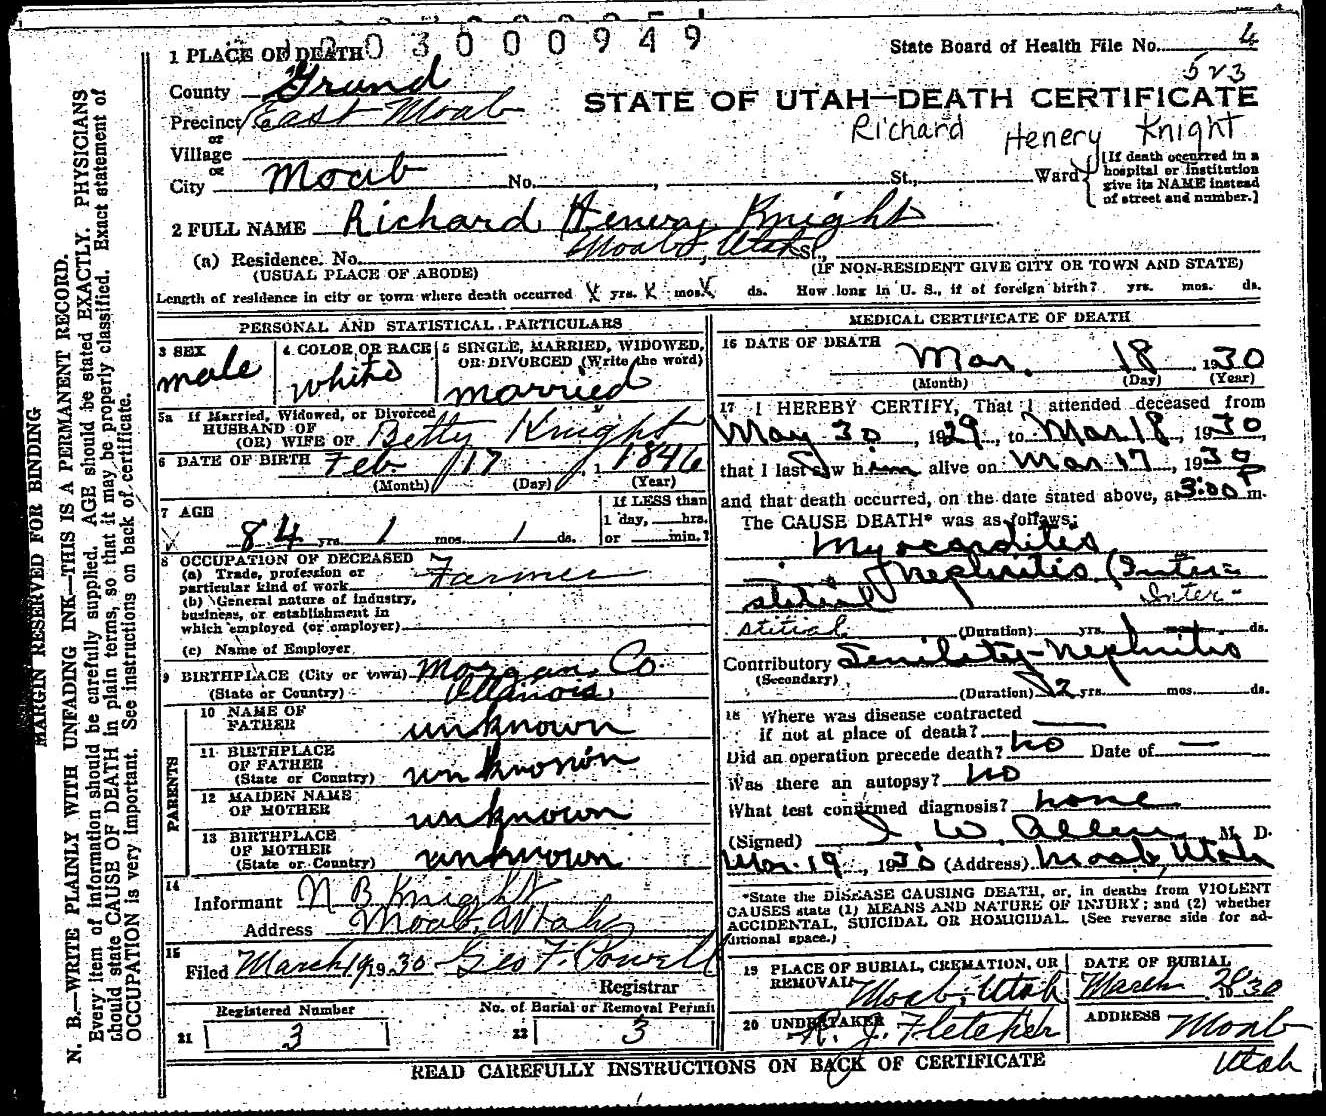 0 0 3 0 0 0 9 4 9
1 PLACE OF DEATH
State Board of Health File No. 4
523
County Grand
STATE OF UTAH—DEATH CERTIFICATE
Precinct East Moab
Richard Henery Knight
or
Village
or
City Moab No. , St., Ward
[If death occurred in a
hospital or institution
give its NAME instead
of street and number.]
2 FULL NAME Richard Henery Knight
(a) Residence. No. Moab, Utah St.,
(USUAL PLACE OF ABODE) (IF NON-RESIDENT GIVE CITY OR TOWN AND STATE)
Length of residence in city or town where death occurred X yrs. X mos. X ds. How long in U. S., if of foreign birth? yrs. mos. ds.
PERSONAL AND STATISTICAL PARTICULARS
3 SEX
male
4 COLOR OR RACE
white
5 SINGLE, MARRIED, WIDOWED,
OR DIVORCED (Write the word)
married
5a If Married, Widowed, or Divorced
HUSBAND OF
(OR) WIFE OF Betty Knight
6 DATE OF BIRTH Feb 17, 1 1846
(Month) (Day) (Year)
7 AGE
84 yrs. 1 mos. 1 ds.
If LESS than
1 day, hrs.
or min.?
8 OCCUPATION OF DECEASED
(a) Trade, profession or
particular kind of work Farmer
(b) General nature of industry,
business, or establishment in
which employed (or employer)
(c) Name of Employer
9 BIRTHPLACE (City or town) Morgan Co.
(State or Country) Illinois
PARENTS
10 NAME OF
FATHER unknown
11 BIRTHPLACE
OF FATHER
(State or Country) unknown
12 MAIDEN NAME
OF MOTHER unknown
13 BIRTHPLACE
OF MOTHER
(State or Country) unknown
14
Informant N B Knight
Address Moab, Utah
15
Filed March 19 19 30 Geo F. Powell
Registrar
Registered Number
21 3
No. of Burial or Removal Permit
22 3
MEDICAL CERTIFICATE OF DEATH
16 DATE OF DEATH
Mar. 18, 1930
(Month) (Day) (Year)
17 I HEREBY CERTIFY, That I attended deceased from
May 30, 1929, to Mar 18, 1930,
that I last saw him alive on Mar 17, 1930
and that death occurred, on the date stated above, at 3:00 P m.
The CAUSE DEATH* was as follows:
Myocarditis
Nephritis (Inter=
stitial
Inter-
stitial (Duration) yrs. mos. ds.
Contributory Senility - Nephritis
(Secondary)
(Duration) 2 yrs. mos. ds.
18 Where was disease contracted
if not at place of death?
Did an operation precede death? no Date of —
Was there an autopsy? no
What test confirmed diagnosis? none
(Signed) I. W. Allen, M. D.
Mar. 19, 1930 (Address) Moab, Utah
*State the DISEASE CAUSING DEATH, or, in deaths from VIOLENT
CAUSES state (1) MEANS AND NATURE OF INJURY; and (2) whether
ACCIDENTAL, SUICIDAL OR HOMICIDAL. (See reverse side for ad-
ditional space.)
19 PLACE OF BURIAL, CREMATION, OR
REMOVAL Moab, Utah
DATE OF BURIAL
March 20 1930
20 UNDERTAKER
R. J. Fletcher
ADDRESS Moab
Utah
READ CAREFULLY INSTRUCTIONS ON BACK OF CERTIFICATE
MARGIN RESERVED FOR BINDING
N. B.—WRITE PLAINLY WITH UNFADING INK—THIS IS A PERMANENT RECORD.
Every item of information should be carefully supplied. AGE should be stated EXACTLY. PHYSICIANS
should state CAUSE OF DEATH in plain terms, so that it may be properly classified. Exact statement of
OCCUPATION is very important. See instructions on back of certificate.